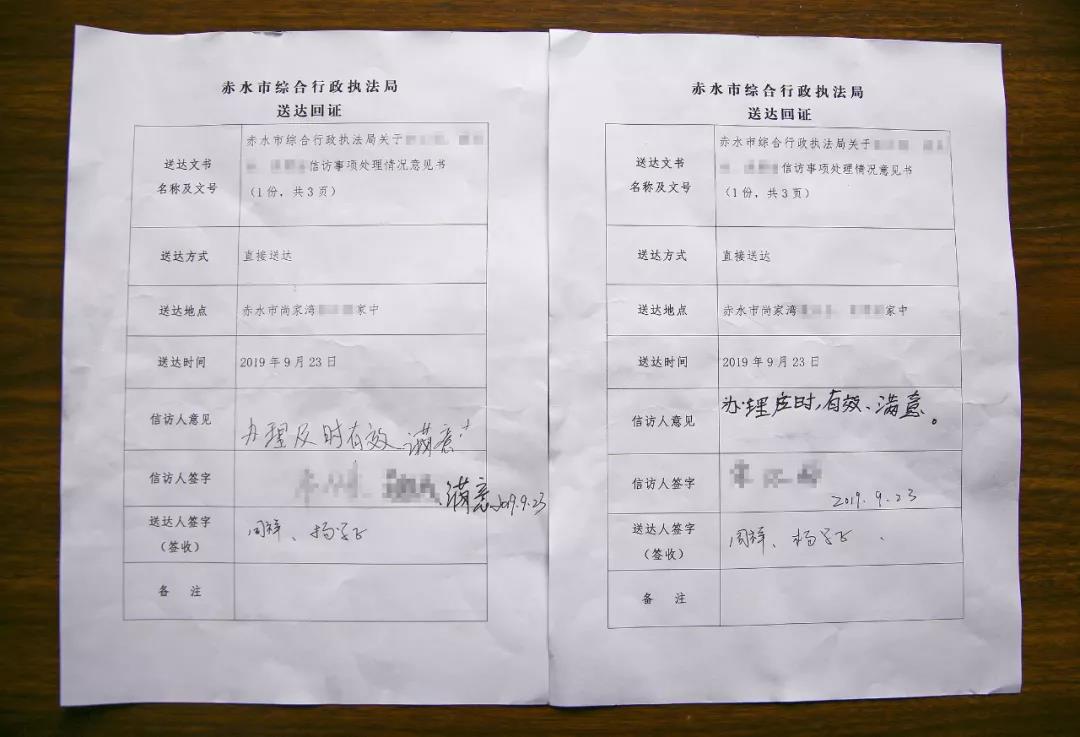 赤水市综合行政执法局
送达回证
送达文书
名称及文号
赤水市综合行政执法局关于
信访事项处理情况意见书
（1份，共3页）
送达方式
直接送达
送达地点
赤水市尚家湾 家中
送达时间
2019年9月23日
信访人意见
办理及时有效 满意!
信访人签字
满意 2019.9.23
送达人签字
（签收）
周祥、杨
备 注
赤水市综合行政执法局
送达回证
送达文书
名称及文号
赤水市综合行政执法局关于
信访事项处理情况意见书
（1份，共3页）
送达方式
直接送达
送达地点
赤水市尚家湾 家中
送达时间
2019年9月23日
信访人意见
办理及时,有效、满意。
信访人签字
2019.9.23
送达人签字
（签收）
周祥、杨
备 注